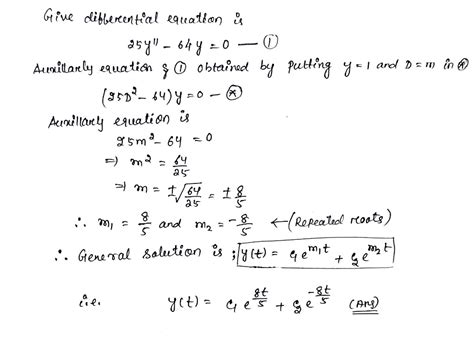 Give differential equation is
25y'' - 64y = 0 — ①
Auxillarly equation of ① obtained by putting y = 1 and D = m in ⊛
(25D² - 64)y = 0 — ⊛
Auxillarly equation is
25m² - 64 = 0
⇒ m² = 64/25
⇒ m = ±√(64/25) = ± 8/5
∴ m₁ = 8/5 and m₂ = -8/5 ← (Repeated roots)
∴ General solution is ; y(t) = c₁ e^(m₁t) + c₂ e^(m₂t)
i.e. y(t) = c₁ e^(8t/5) + c₂ e^(-8t/5) (Ans)